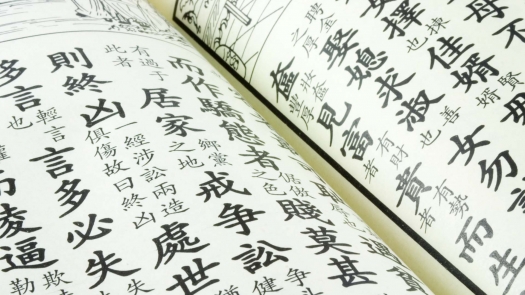 母不
女擇揀也佳婿賢婿毋
聘金之厚娶媳求淑善也女勿
奩妝奩豐厚見富有財者貴有勢者而生
而作驕態者倨傲之色賤莫甚
有過于此者居家之地鄉黨戒爭訟
則終凶一經涉訟兩造俱傷故曰終凶處世
多言輕言也言多必失
凌逼